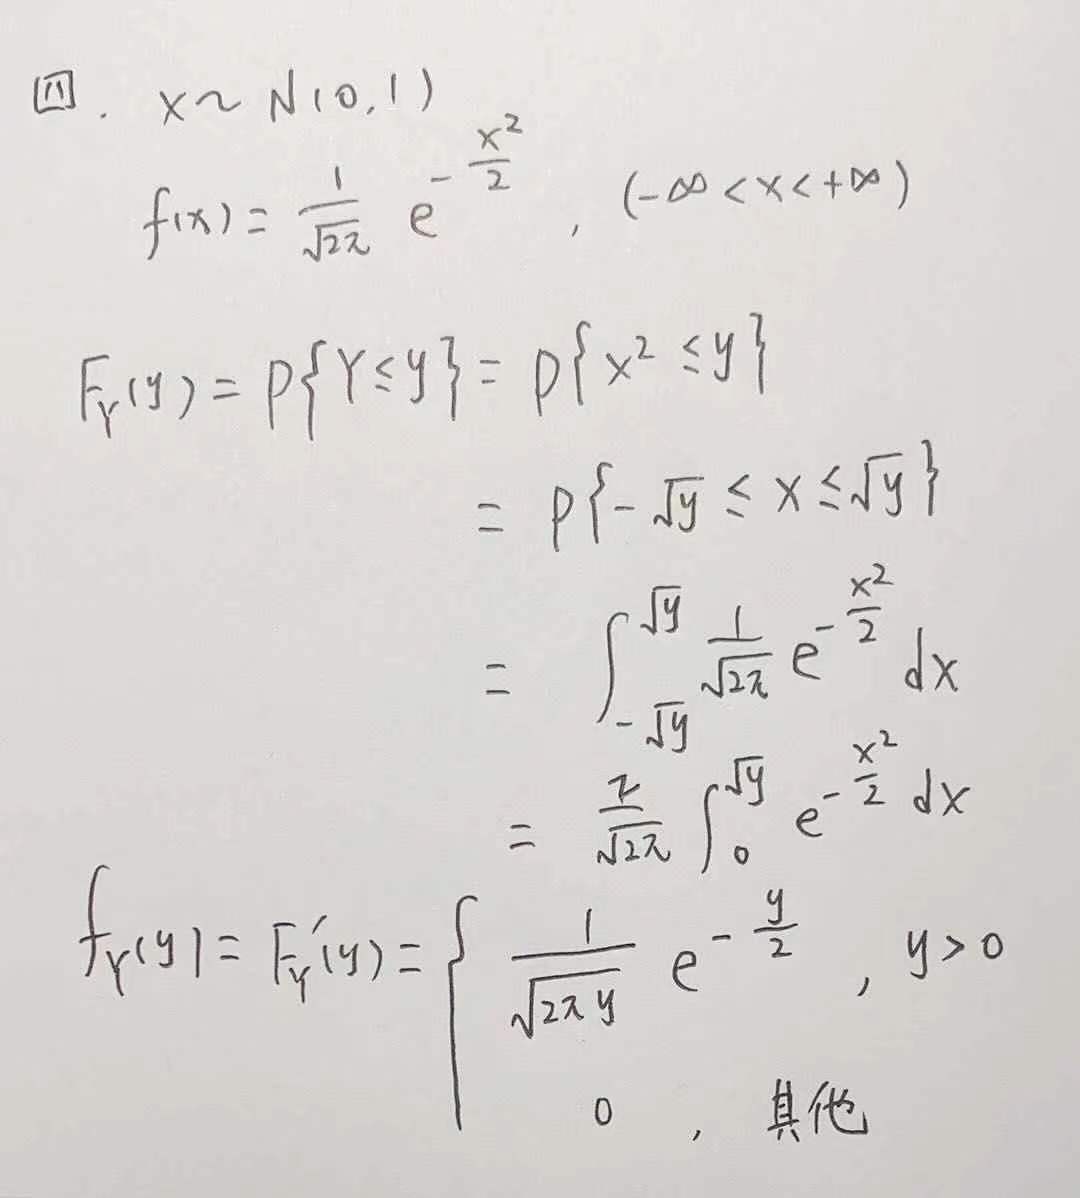 四. X~N(0,1)
f(x)=\frac{1}{\sqrt{2π}} e^{-\frac{x^2}{2}}, (-∞<x<+∞)
F_Y(y)=P{Y≤y}=P{X^2≤y}
=P{-\sqrt{y}≤X≤\sqrt{y}}
=\int_{-\sqrt{y}}^{\sqrt{y}} \frac{1}{\sqrt{2π}} e^{-\frac{x^2}{2}} dx
=\frac{2}{\sqrt{2π}} \int_{0}^{\sqrt{y}} e^{-\frac{x^2}{2}} dx
f_Y(y)=F_Y'(y)={ \frac{1}{\sqrt{2πy}} e^{-\frac{y}{2}}, y>0
0, 其他